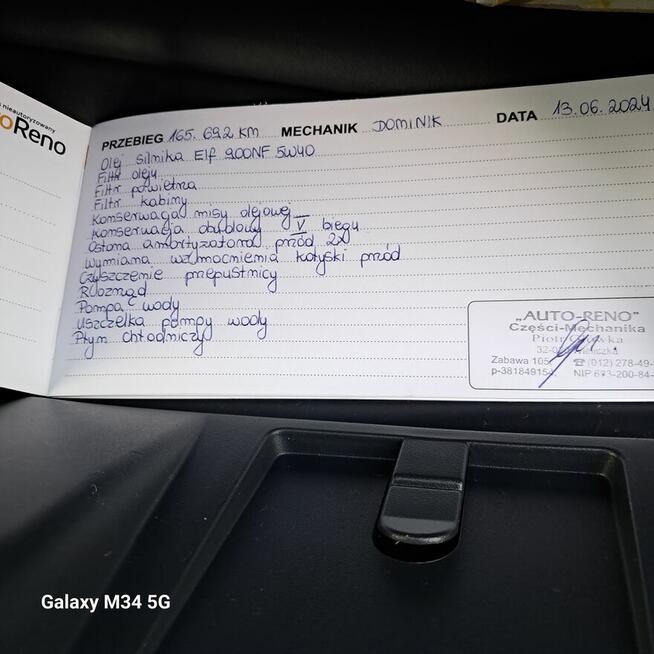 nieautoryzowany
oReno
PRZEBIEG 165.692 KM MECHANIK DOMINIK DATA 13.06.2024
Olej Silnika Elf 900NF 5W40
Filtr oleju
Filtr powietrza
Filtr kabiny
Konserwacja misy olejowej
Konserwacja obudowy V biegu
Osłona amortyzatora przód 2x
Wymiana wzmocnienia kołyski przód
Czyszczenie przepustnicy
Rozrząd
Pompa wody
Uszczelka pompy wody
Płyn chłodniczy
„AUTO-RENO”
Części-Mechanika
Piotr
32-0
Zabawa 105 ☎(012) 278-49-
p-38184915 NIP 683-200-84-
Galaxy M34 5G